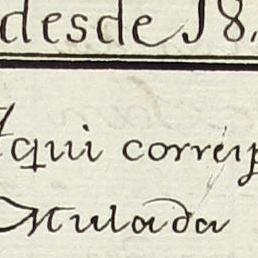 desde 18.
Aqui correip
Mulada